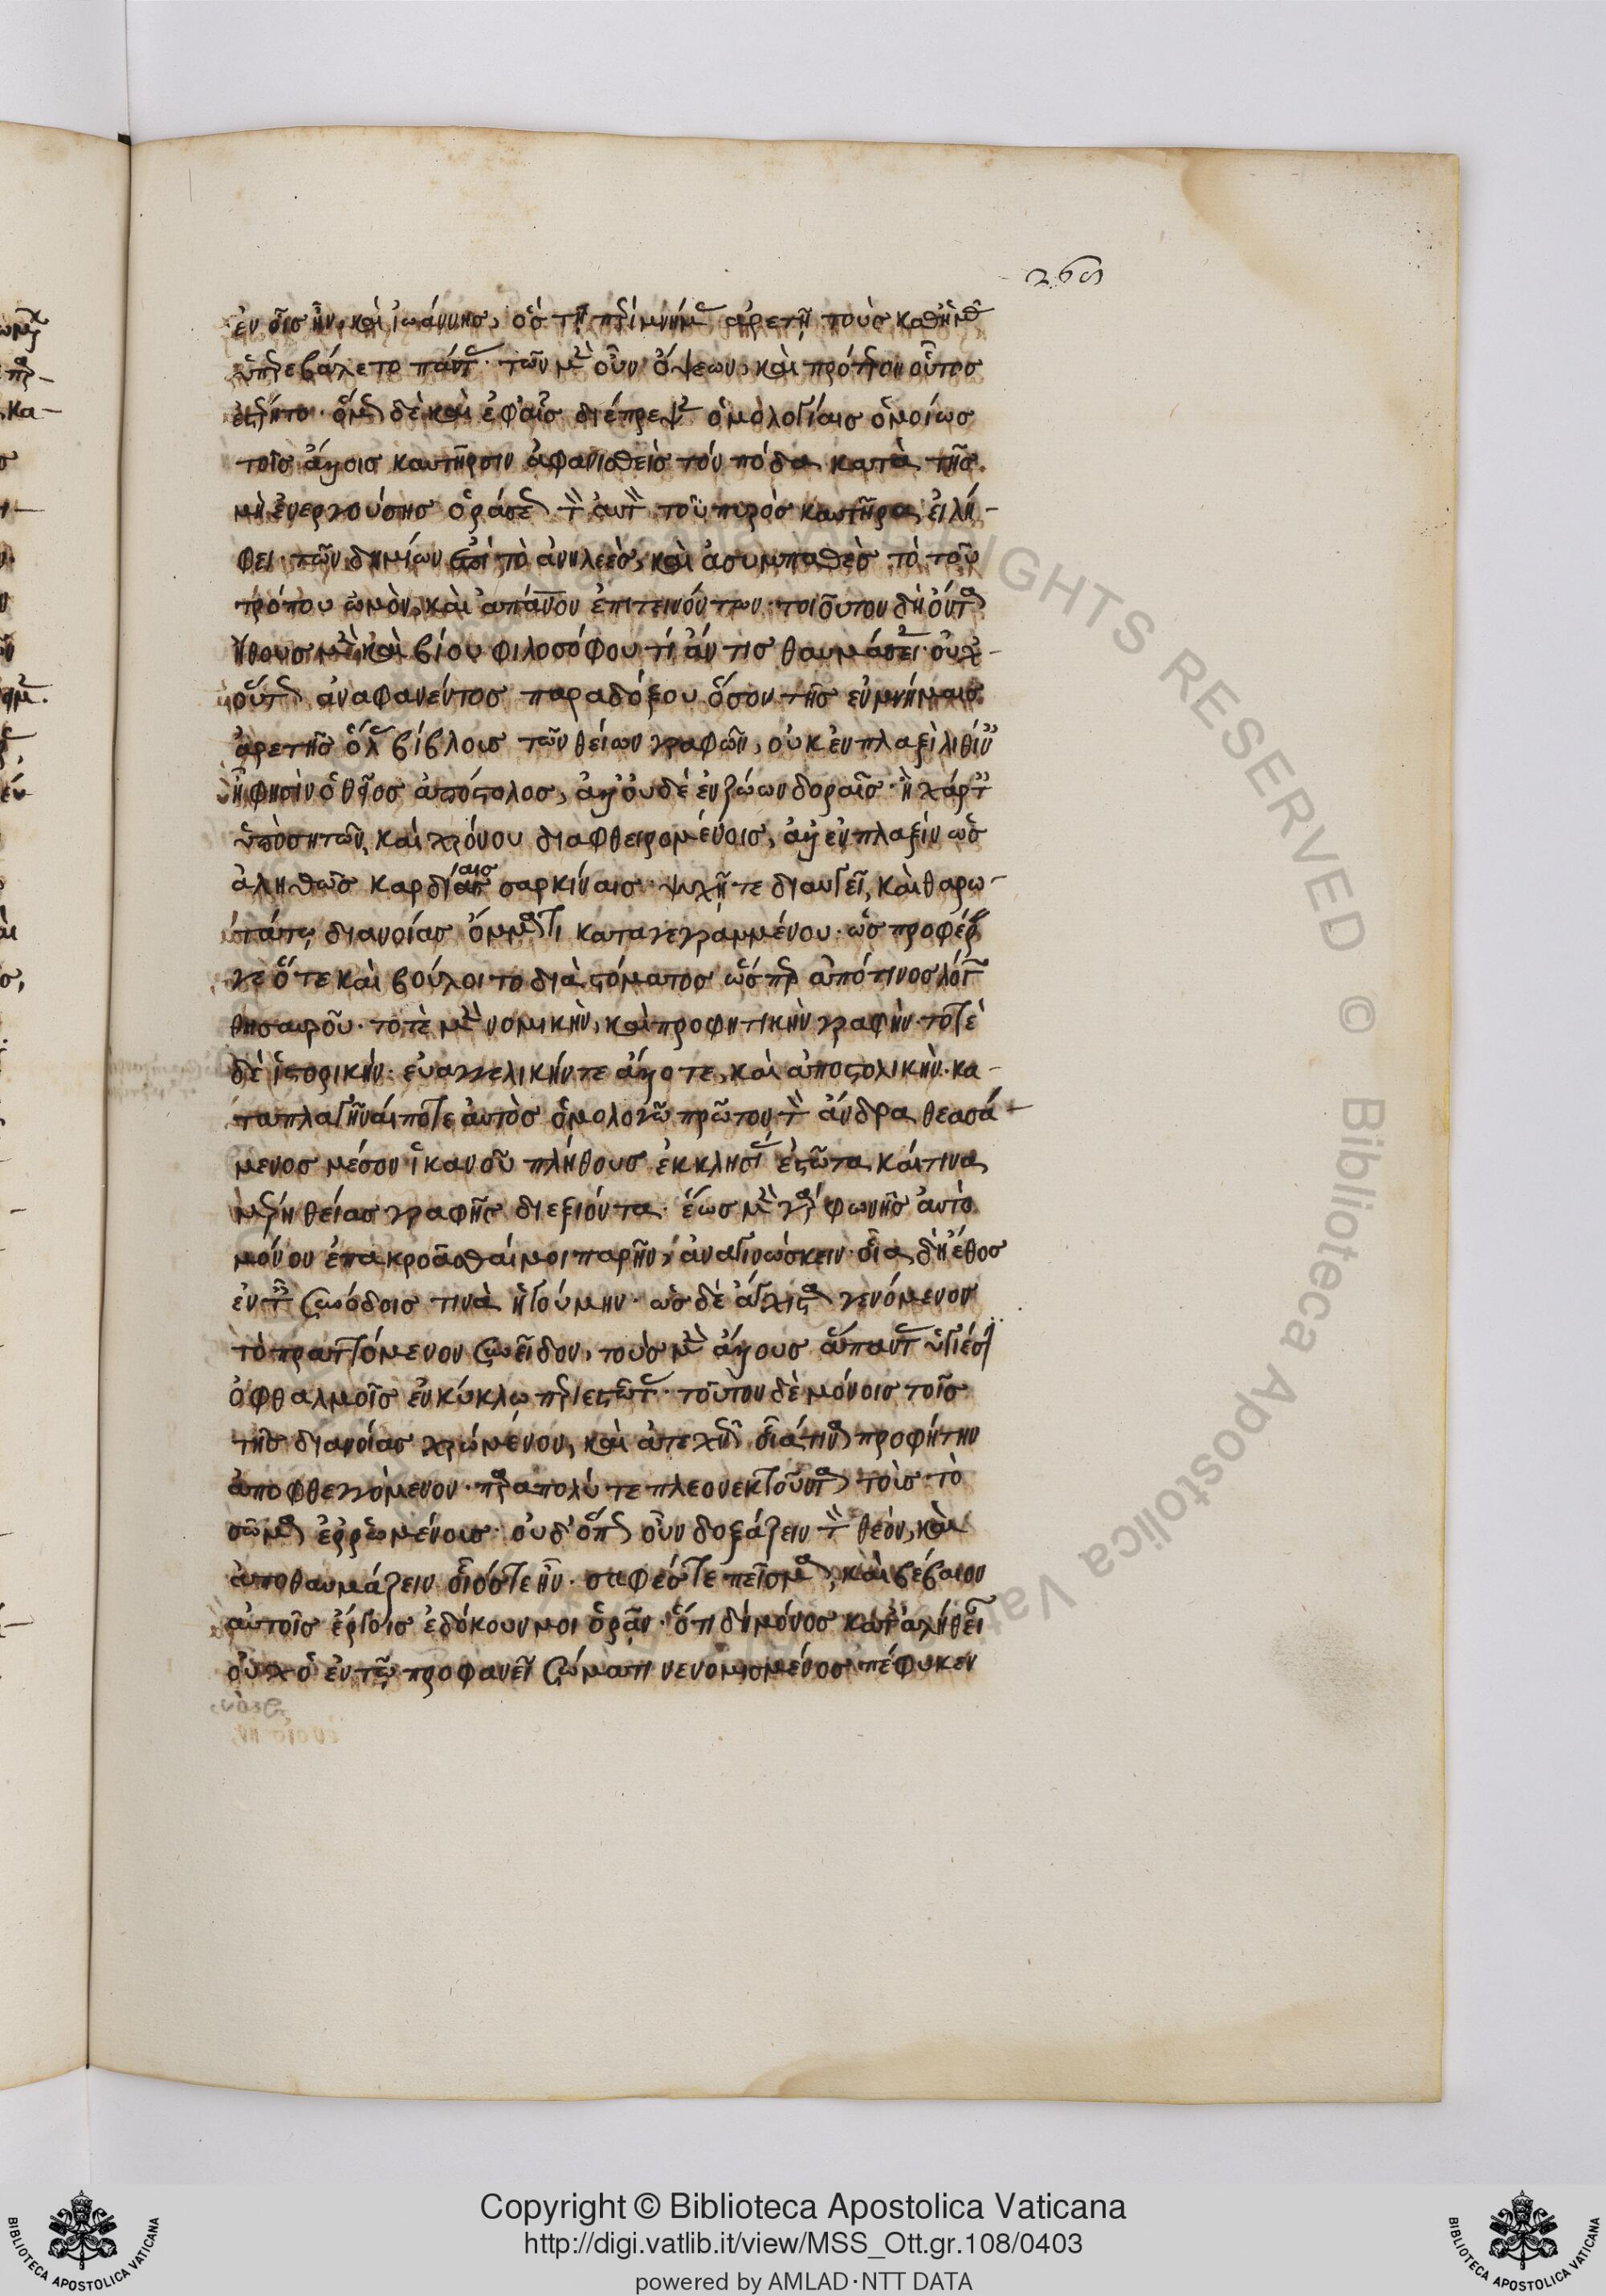 ἐν οἷς ἦν καὶ ἰωάννης, ὃς τῇ περὶ μνήμην ἀρετῇ τοὺς καθ' ἡμᾶς
ὑπερεβάλετο πάντας. τῶν μὲν οὖν ὄψεων, καὶ πρότερον οὗτος
ἐστέρητο. ὅμως δὲ καὶ ἐφ' αἷς διέπρεψεν ὁμολογίαις ὁμοίως
τοῖς ἄλλοις καυτῆρσιν ἀφανισθεὶς τὸν πόδα κατὰ τῆς
μὴ ἐνεργούσης ὁράσεως τοὺς αὐτοὺς τοῦ πυρὸς καυτῆρας εἰλή-
φει. τῶν δημίων ἐπὶ τὸ ἀνηλεὲς, καὶ ἀσυμπαθὲς τὸ τοῦ
τρόπου ὠμὸν, καὶ ἀπάνθρωπον ἐπιτεινόντων. τοιοῦτον δὴ ὄντα
ἤθους μὲν καὶ βίου φιλοσόφου τί ἄν τις θαυμάσειεν. οὐχ
οὕτως ἀναφανέντος παραδόξου ὅσον τῆς ἐν μνήμαις
ἀρετῆς ὅλας βίβλους τῶν θείων γραφῶν, οὐκ ἐν πλαξὶ λιθίναις
ᾗ φησὶν ὁ θεῖος ἀπόστολος, ἀλλ' οὐδὲ ἐν ζώων δοραῖς. ἢ χάρταις
ὑπὸ σητῶν, καὶ χρόνου διαφθειρομένοις, ἀλλ' ἐν πλαξὶν ὡς
ἀληθῶς καρδίαις σαρκίναις. ψυχῇ τε διαυγεῖ, καὶ καθαρω-
τάτῳ διανοίας ὄμματι καταγεγραμμένου. ὡς προφέρειν
γε ὅτε καὶ βούλοιτο διὰ στόματος ὥσπερ ἀπό τινος λόγων
θησαυροῦ. τοτὲ μὲν νομικὴν, καὶ προφητικὴν γραφὴν. τοτὲ
δὲ ἱστορικήν. εὐαγγελικήν τε ἄλλοτε, καὶ ἀποστολικὴν. κα-
ταπλαγῆναί ποτε αὐτὸς ὁμολογῶ πρῶτον τὸν ἄνδρα θεασά-
μενος μέσον ἱκανοῦ πλήθους ἐκκλησίας ἑστῶτα καί τινα
μέρη θείας γραφῆς διεξιόντα. ἕως μὲν γὰρ φωνῆς αὐτὸ
μόνον ἐπακροᾶσθαί μοι παρῆν, ἀναγινώσκειν. οἷα δὴ ἔθος
ἐν ταῖς συνόδοις τινὰ ἡγούμην. ὡς δὲ ἄγχιστα γενόμενον
τὸ πραττόμενον συνεῖδον, τοὺς μὲν ἄλλους ἅπαντας ὑγιέσιν
ὀφθαλμοῖς ἐν κύκλω περιεστῶτας. τοῦτον δὲ μόνοις τοῖς
τῆς διανοίας χρώμενον, καὶ ἀτεχνῶς οἷά τινα προφήτην
ἀποφθεγγόμενον. παρὰ πολύ τε πλεονεκτοῦντα τοῖς τὸ
σῶμα ἐρρωμένοις. οὐδ' ὅπως οὖν δοξάζειν τὸν θεὸν, καὶ
ἀποθαυμάζειν οἷός τε ἦν. σαφές τε πεῖσμα, καὶ βέβαιον
αὐτοῖς ἔργοις ἐδόκουν μοι ὁρᾶν. ὅτι δὴ μόνος κατ' ἀλήθειαν
οὐχ ὁ ἐν τῷ προφανεῖ σώματι νενομισμένος πέφυκεν
Copyright © Biblioteca Apostolica Vaticana
http://digi.vatlib.it/view/MSS_Ott.gr.108/0403
powered by AMLAD·NTT DATA